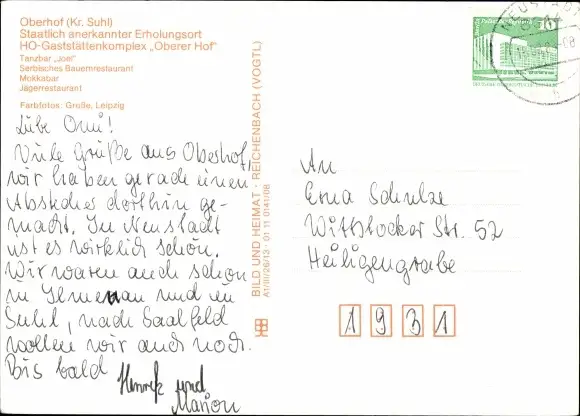 Oberhof (Kr. Suhl)
Staatlich anerkannter Erholungsort
HO-Gaststättenkomplex „Oberer Hof"
Tanzbar „Joel"
Serbisches Bauernrestaurant
Mokkabar
Jägerrestaurant
Farbfotos: Große, Leipzig
Liebe Omi!
Viele Grüße aus Oberhof,
wir haben gerade einen
Abstecher dorthin ge-
macht. In Neustadt
ist es wirklich schön.
Wir waren auch schon
in Ilmenau und in
Suhl, nach Saalfeld
wollen wir auch noch.
Bis bald
und
Marion
BILD UND HEIMAT · REICHENBACH (VOGTL)
A1/III/26/13 · 01 11 0141/08
10
NEUSTADT
An
Erna Schulze
Wittstocker Str. 52
Heiligengrabe
1931